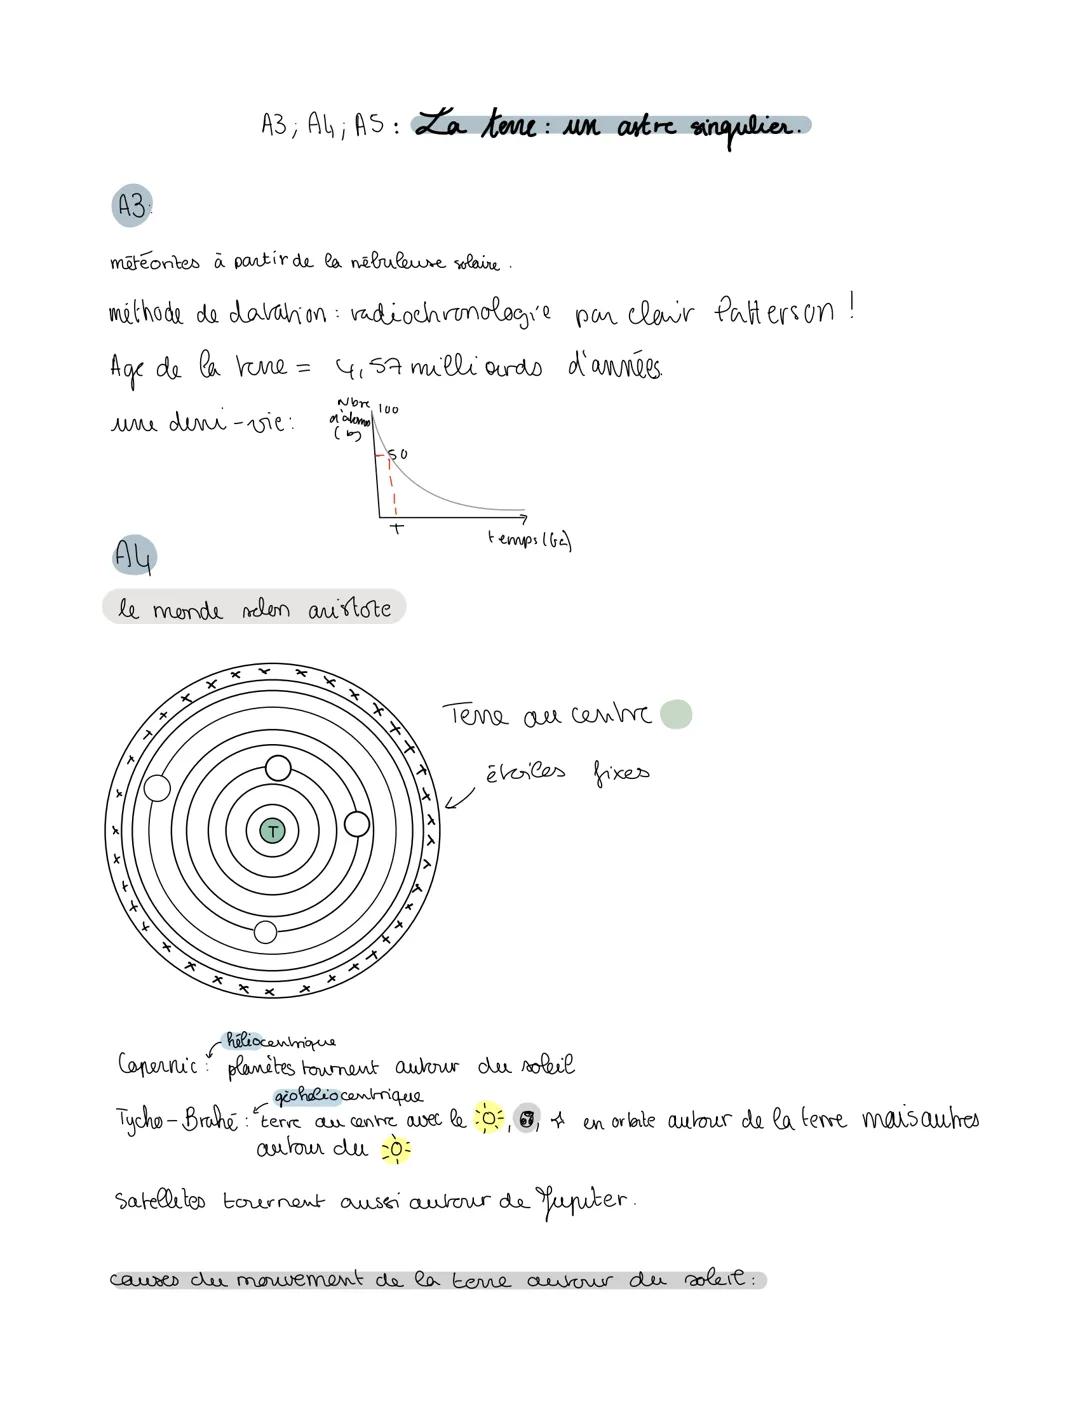 A3; A4; A5 : La terre : un astre singulier.
A3:
météorites à partir de la nébuleuse solaire.
méthode de datation : radiochronologie par clair Patterson !
Age de la terre = 4,57 milliards d'années.
une demi-vie :
Nbre
d'atomes
100
50
T
temps (Ga)
A4
le monde selon aristote
Terre au centre
étoiles fixes
T
héliocentrique
Copernic : planètes tournent autour du soleil
géohéliocentrique
Tycho-Brahé : terre au centre avec le , , en orbite autour de la terre mais autres
autour du
Satellites tournent aussi autour de Jupiter.
causes du mouvement de la terre autour du soleil :